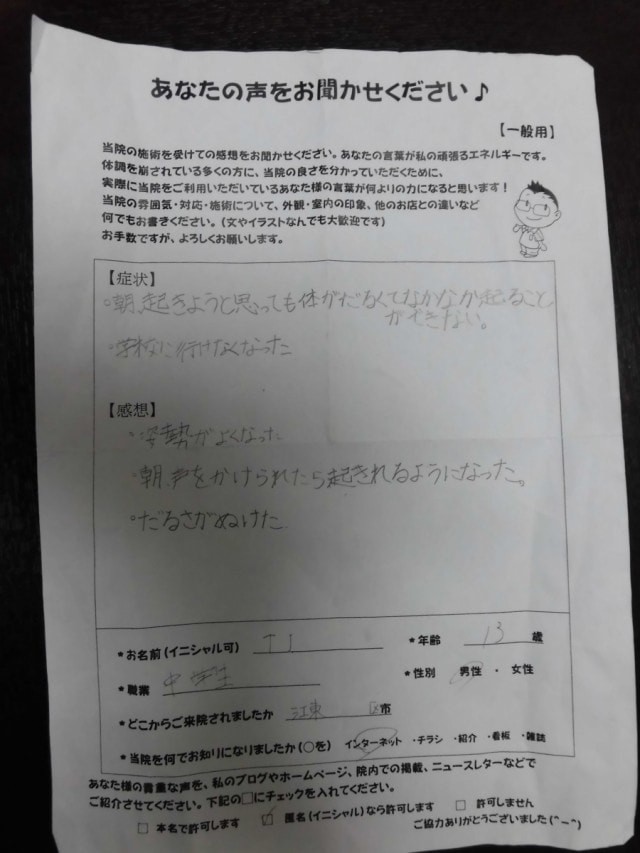 あなたの声をお聞かせください♪
【一般用】
当院の施術を受けての感想をお聞かせください。あなたの言葉が私の頑張るエネルギーです。
体調を崩されている多くの方に、当院の良さを分かっていただくために、
実際に当院をご利用いただいているあなた様の言葉が何よりの力になると思います!
当院の雰囲気・対応・施術について、外観・室内の印象、他のお店との違いなど
何でもお書きください。(文やイラストなんでも大歓迎です)
お手数ですが、よろしくお願いします。
【症状】
・朝、起きようと思っても体がだるくてなかなか起ること
ができない。
・学校に行けなくなった
【感想】
・姿勢がよくなった
・朝、声をかけられたら起きれるようになった。
・だるさがぬけた
*お名前(イニシャル可) *年齢 13 歳
*職業 中学生 *性別 男性 ・ 女性
*どこからご来院されましたか 江東 区市
*当院を何でお知りになりましたか(○を) インターネット ・チラシ ・紹介 ・看板 ・雑誌
あなた様の貴重な声を、私のブログやホームページ、院内での掲載、ニュースレターなどで
ご紹介させてください。下記の□にチェックを入れてください。
□ 本名で許可します ☑ 匿名(イニシャル)なら許可します □ 許可しません
ご協力ありがとうございました(^-^)